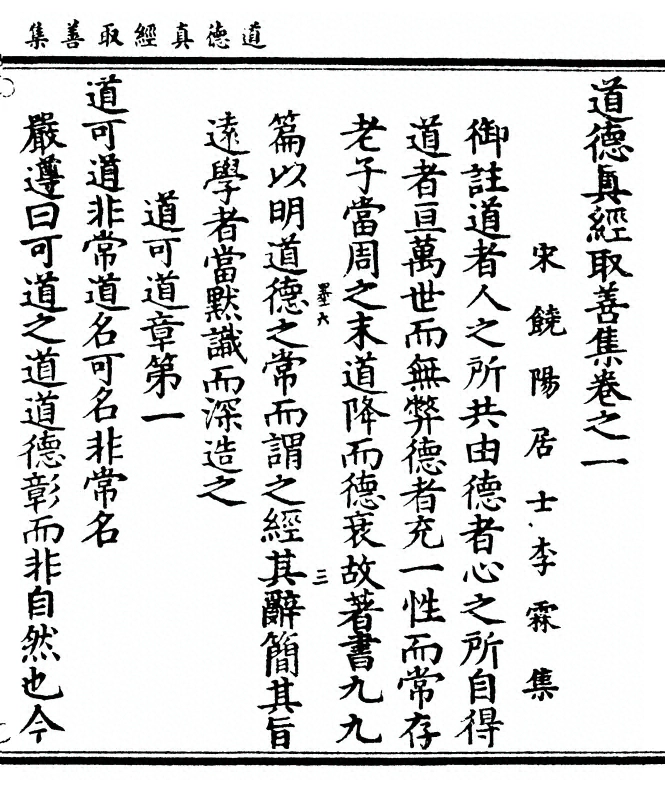 道德真經取善集
道德眞經取善集卷之一
宋饒陽居士李霖集
御註道者人之所共由德者心之所自得
道者亘萬世而無弊德者充一性而常存
老子當周之末道降而德衰故著書九九
篇以明道德之常而謂之經其辭簡其旨
遠學者當默識而深造之
道可道章第一
道可道非常道名可名非常名
嚴遵曰可道之道道德彰而非自然也今
三